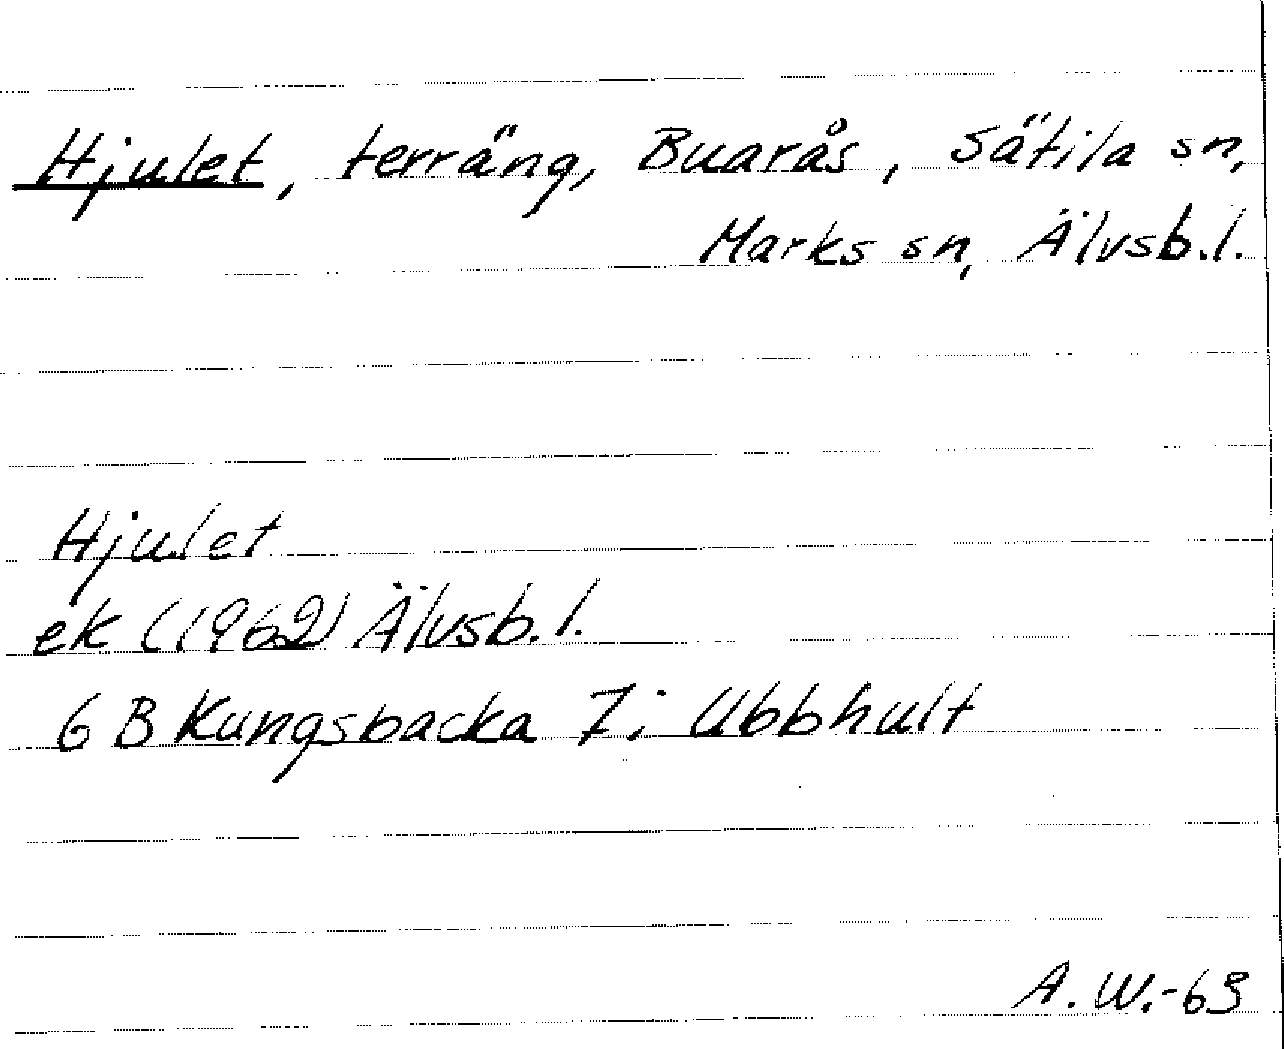 Hjulet, terräng, Buarås, Sätila sn,
Marks sn, Älvsb.l.
Hjulet
ek (1962) Älvsb.l.
6 B Kungsbacka 7i Ubbhult
A. W.-63